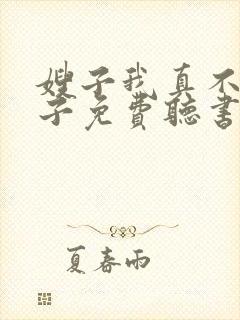 嫂子我真不
子免费聽書
夏春雨